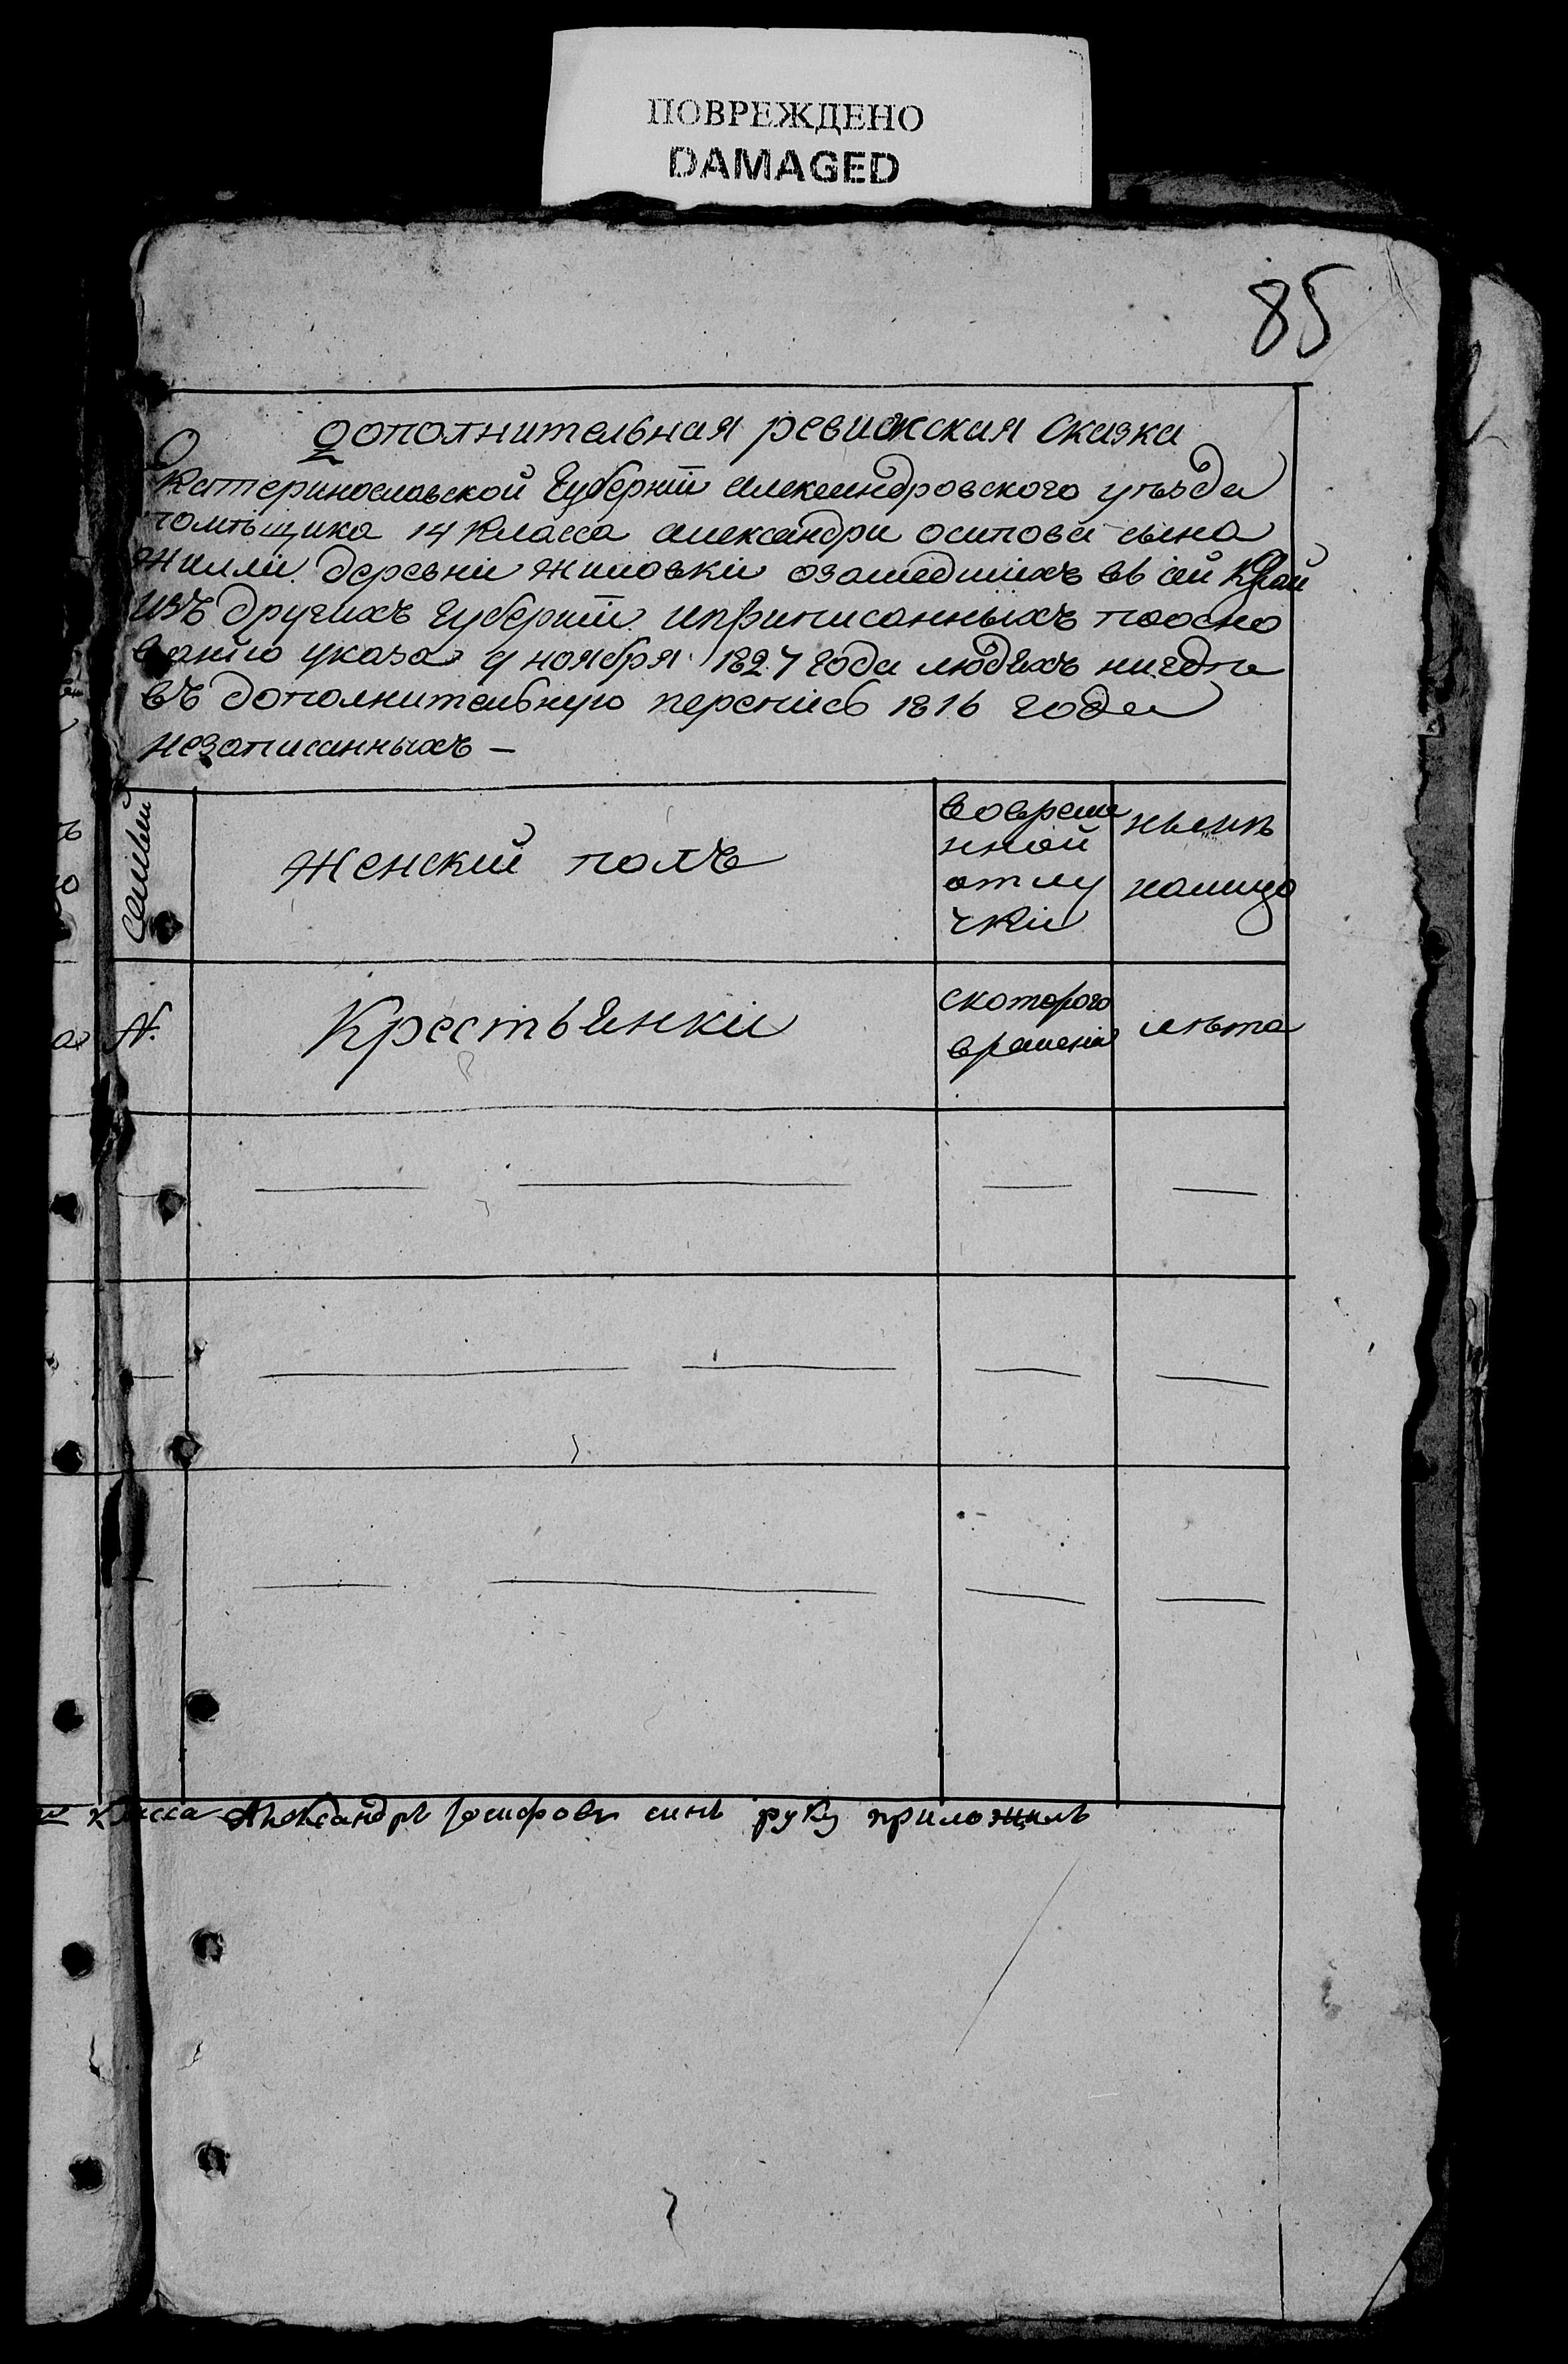 ПОВРЕЖДЕНО
DAMAGED
85
Дополнительная ревижская сказка
Екатеринославской Губернiи Александровского уѣзда
помѣщика 14 класса александра осипова сына
жилли деревни жиловки озашедшихъ въ сй Край
изъ другихъ Губернiй иприписанныхъ поосно
ванiю указа 4 ноября 1827 года людехъ нигдѣ
въ дополнительную перепись 1816 года
незаписанныхъ —
Семьи
женский полъ
вовреме
нной
отлу
чки
нынѣ
налицо
№.
Крестьянки
скоторого
времени
лѣта
класса Александръ Iосифовъ синъ руку приложилъ